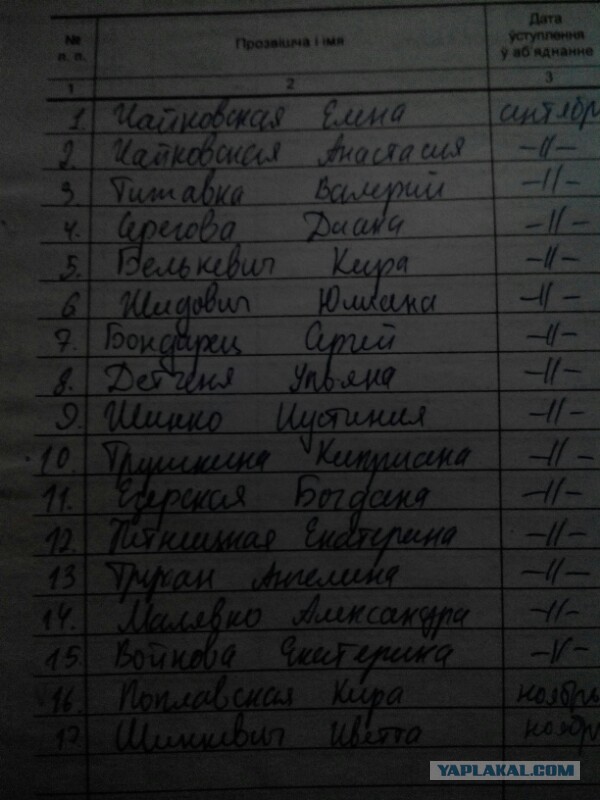 № п. п. Прозвішча і імя Дата ўступлення ў аб'яднанне
1 2 3
1. Чайковская Елена сентябрь
2. Чайковская Анастасия -//-
3 Тишавка Валерий -//-
4. Серегова Диана -//-
5. Белькевич Кира -//-
6 Шидович Юлиана -//-
7. Бондарец Сергей -//-
8. Детченя Ульяна -//-
9. Шинко Иустиния -//-
10. Трушкина Киприана -//-
11. Езерская Богдана -//-
12. Пятницкая Екатерина -//-
13 Трухан Ангелина -//-
14. Малявко Александра -//-
15. Войнова Екатерина -//-
16. Поплавская Кира ноябрь
17. Шинкевич Иветта ноябрь
YAPLAKAL.COM